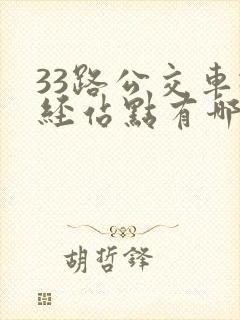 33路公交車
經佔點有哪
胡哲鋒